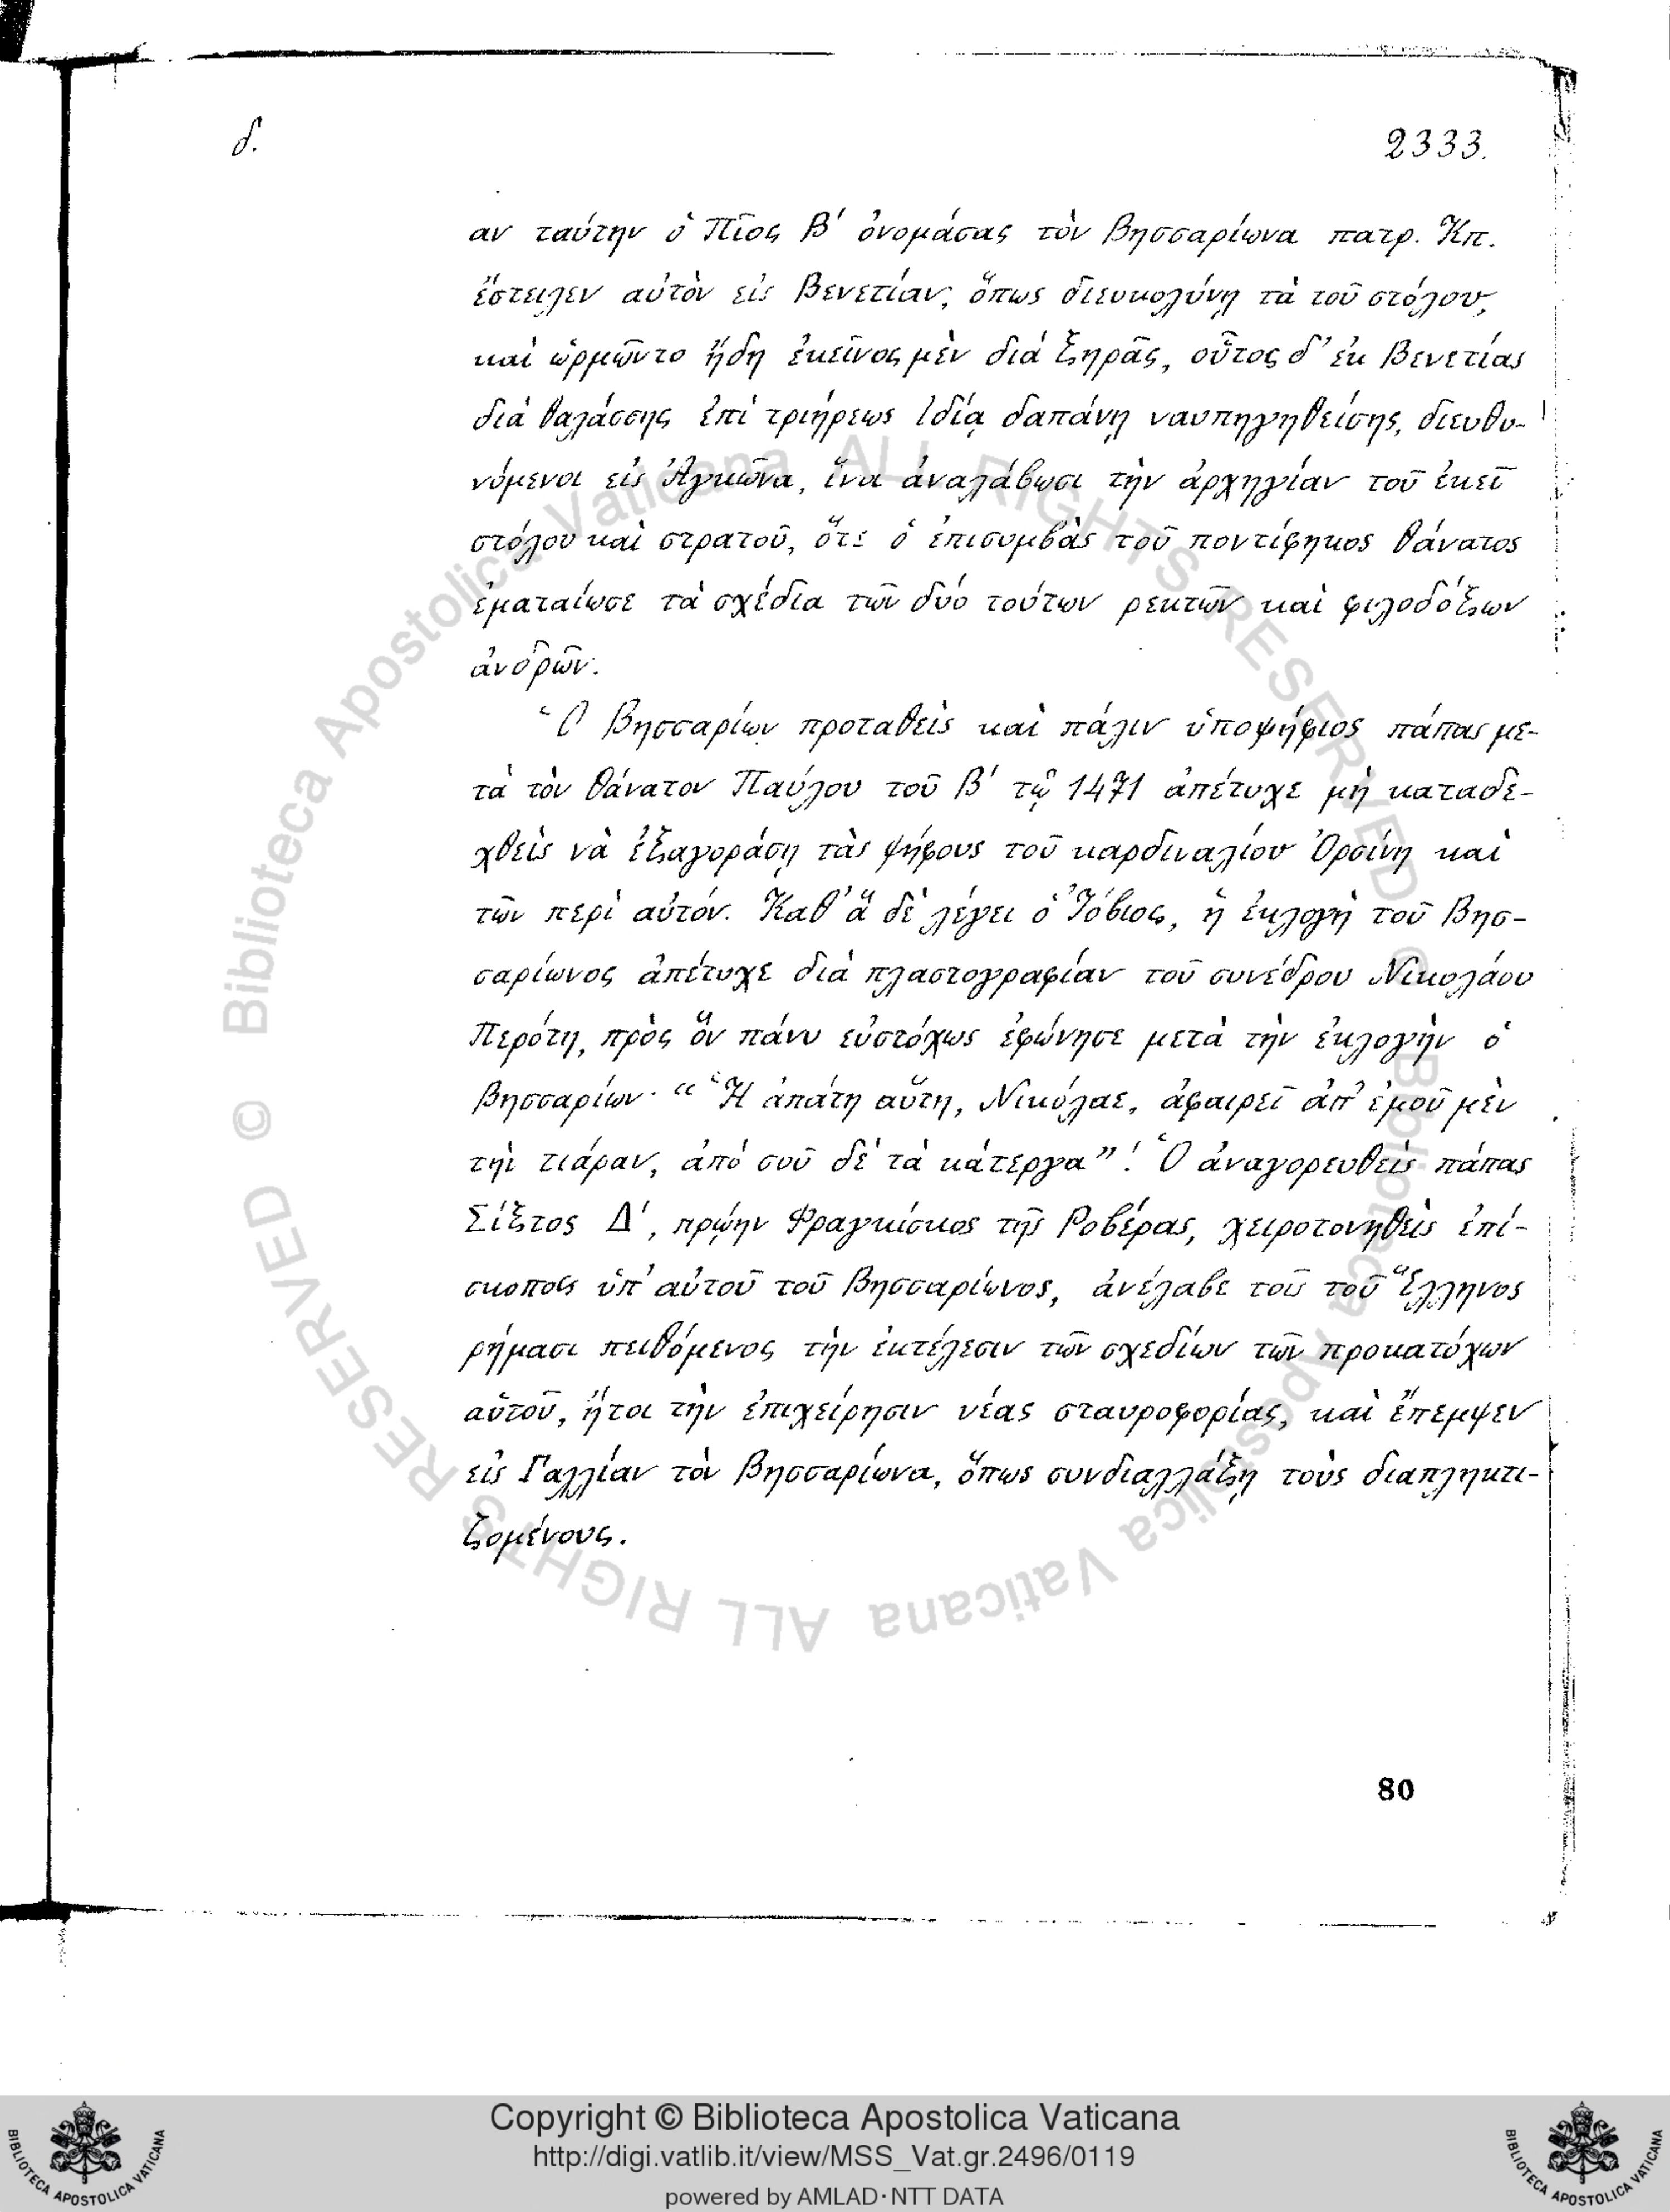 δ.
2333.
αν ταύτην ὁ Πῖος Β' ὀνομάσας τὸν Βησσαρίωνα πατρ. Κπ.
ἔστειλεν αὐτὸν εἰς Βενετίαν, ὅπως διευκολύνῃ τὰ τοῦ στόλου,
καὶ ὡρμῶντο ἤδη ἐκεῖνος μὲν διὰ ξηρᾶς, οὗτος δ' ἐκ Βενετίας
διὰ θαλάσσης ἐπὶ τριήρεως ἰδίᾳ δαπάνῃ ναυπηγηθείσης, διευθυ-
νόμενοι εἰς Ἀγκῶνα, ἵνα ἀναλάβωσι τὴν ἀρχηγίαν τοῦ ἐκεῖ
στόλου καὶ στρατοῦ, ὅτε ὁ ἐπισυμβὰς τοῦ ποντίφηκος θάνατος
ἐματαίωσε τὰ σχέδια τῶν δύο τούτων ρεκτῶν καὶ φιλοδόξων
ἀνδρῶν.
Ὁ Βησσαρίων προταθεὶς καὶ πάλιν ὑποψήφιος πάπας με-
τὰ τὸν θάνατον Παύλου τοῦ Β' τῷ 1471 ἀπέτυχε μὴ καταδε-
χθεὶς νὰ ἐξαγοράσῃ τὰς ψήφους τοῦ καρδιναλίου Ὀρσίνη καὶ
τῶν περὶ αὐτόν. Καθ' ἃ δὲ λέγει ὁ Ἰόβιος, ἡ ἐκλογὴ τοῦ Βησ-
σαρίωνος ἀπέτυχε διὰ πλαστογραφίαν τοῦ συνέδρου Νικολάου
Περότη, πρὸς ὃν πάνυ εὐστόχως ἐφώνησε μετὰ τὴν ἐκλογὴν ὁ
Βησσαρίων· "Ἡ ἀπάτη αὕτη, Νικόλαε, ἀφαιρεῖ ἀπ' ἐμοῦ μὲν
τὴν τιάραν, ἀπὸ σοῦ δὲ τὰ κάτεργα"! Ὁ ἀναγορευθεὶς πάπας
Σίξτος Δ', πρῴην Φραγκίσκος τῆς Ροβέρας, χειροτονηθεὶς ἐπί-
σκοπος ὑπ' αὐτοῦ τοῦ Βησσαρίωνος, ἀνέλαβε τοῖς τοῦ Ἕλληνος
ρήμασι πειθόμενος τὴν ἐκτέλεσιν τῶν σχεδίων τῶν προκατόχων
αὑτοῦ, ἤτοι τὴν ἐπιχείρησιν νέας σταυροφορίας, καὶ ἔπεμψεν
εἰς Γαλλίαν τὸν Βησσαρίωνα, ὅπως συνδιαλλάξῃ τοὺς διαπληκτι-
ζομένους.
80
© Biblioteca Apostolica Vaticana ALL RIGHTS RESERVED
© Biblioteca Apostolica Vaticana ALL RIGHTS RESERVED
Copyright © Biblioteca Apostolica Vaticana
http://digi.vatlib.it/view/MSS_Vat.gr.2496/0119
powered by AMLAD·NTT DATA
BIBLIOTECA APOSTOLICA VATICANA
BIBLIOTECA APOSTOLICA VATICANA